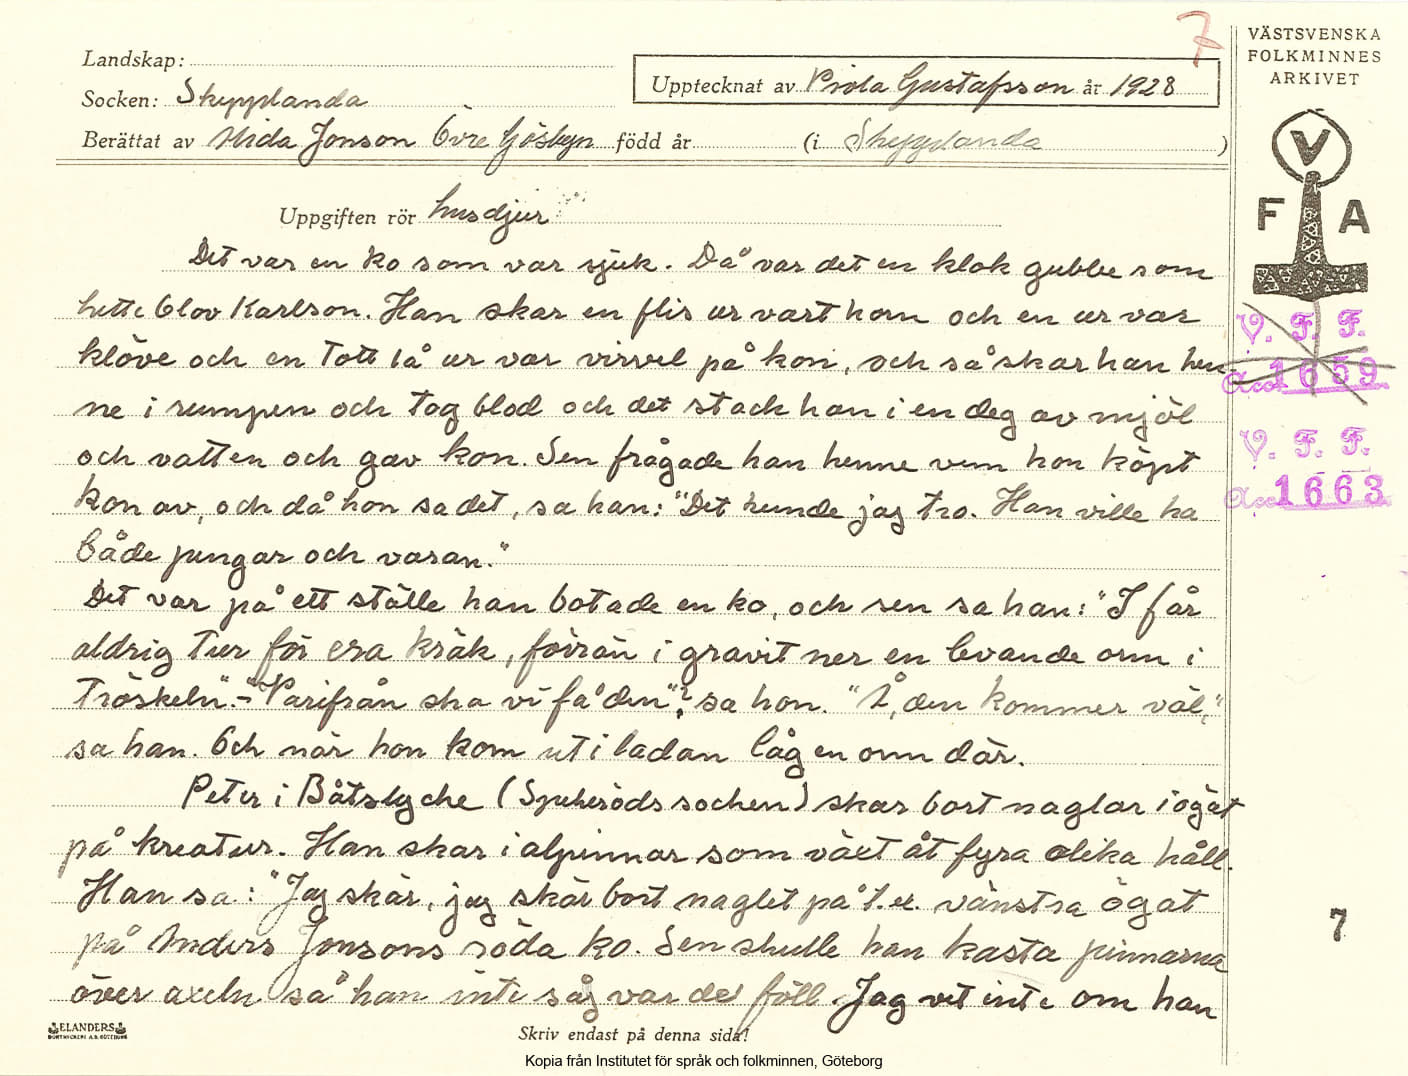 7
VÄSTSVENSKA
FOLKMINNES
ARKIVET
Landskap:
Upptecknat av Viola Gustafsson år 1928
Socken: Skepplanda
Berättat av Alida Jonson Övre Gösbyn född år (i Skepplanda)
V
F A
Uppgiften rör husdjur
Det var en ko som var sjuk. Då var det en klok gubbe som
hette Olov Karlson. Han skar en flis ur vart horn och en ur var
klöve och en tott tå ur var virvel på kon, och så skar han hen-
ne i rumpen och tog blod och det stack han i en deg av mjöl
och vatten och gav kon. Sen frågade han henne vem hon köpt
kon av, och då hon sa det, sa han: "Det kunde jag tro. Han ville ha
både pengar och varan."
Det var på ett ställe han botade en ko, och sen sa han: "I får
aldrig tur för era kräk, förrän i gravit ner en levande orm i
tröskeln". - "Varifrån ska vi få den"? sa hon. "Å, den kommer väl,"
sa han. Och när hon kom ut i ladan låg en orm där.
Peter i Båtslycke (Sjuheröds socken) skar bort naglar i ögat
på kreatur. Han skar i alpinnar som växt åt fyra olika håll.
Han sa: "Jag skär, jag skär bort naglet på t.ex. vänstra ögat
på Anders Jonsons röda ko. Sen skulle han kasta pinnarna
över axeln så han inte såg var de föll. Jag vet inte om han
V. F. F.
Acc 1659
V. F. F.
Acc 1663
7
ELANDERS
BOKTRYCKERI A.B. GÖTEBORG
Skriv endast på denna sida!
Kopia från Institutet för språk och folkminnen, Göteborg